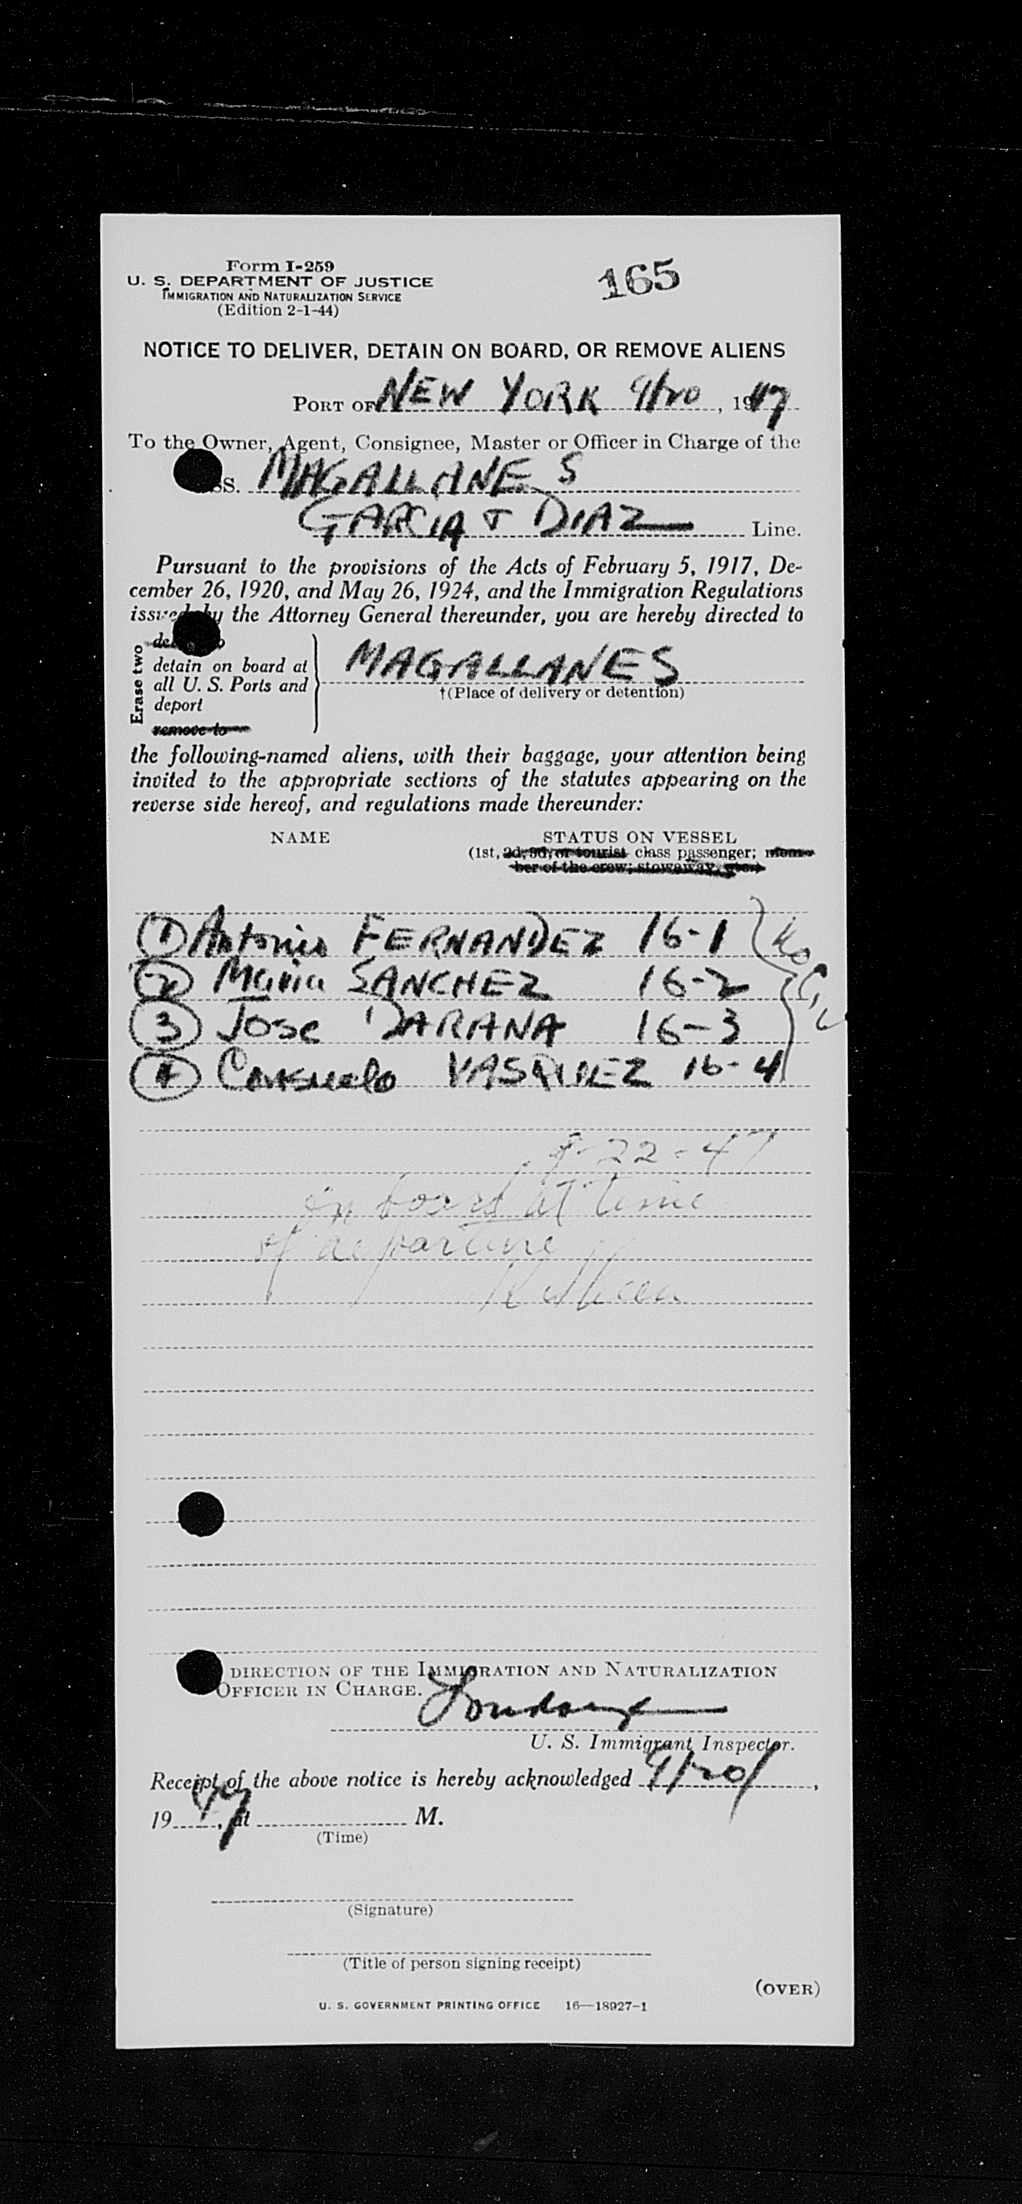 Form I-259
165
U. S. DEPARTMENT OF JUSTICE
IMMIGRATION AND NATURALIZATION SERVICE
(Edition 2-1-44)
NOTICE TO DELIVER, DETAIN ON BOARD, OR REMOVE ALIENS
PORT OF NEW YORK 9/20, 1947
To the Owner, Agent, Consignee, Master or Officer in Charge of the
SS. MAGALLANES
GARCIA & DIAZ Line.
Pursuant to the provisions of the Acts of February 5, 1917, De-
cember 26, 1920, and May 26, 1924, and the Immigration Regulations
issued by the Attorney General thereunder, you are hereby directed to
Erase two
detain on board at
all U. S. Ports and
deport
remove to
MAGALLANES
†(Place of delivery or detention)
the following-named aliens, with their baggage, your attention being
invited to the appropriate sections of the statutes appearing on the
reverse side hereof, and regulations made thereunder:
NAME STATUS ON VESSEL
(1st, 2d, 3d, or tourist class passenger; mem-
ber of the crew; stowaway, etc.)
1 Antonio FERNANDEZ 16-1
2 Maria SANCHEZ 16-2
3 Jose DARANA 16-3
4 Consuelo VASQUEZ 16-4
9-22-47
On board at time
of departure
DIRECTION OF THE IMMIGRATION AND NATURALIZATION
OFFICER IN CHARGE.
U. S. Immigrant Inspector.
Receipt of the above notice is hereby acknowledged 9/20/,
1947, at M.
(Time)
(Signature)
(Title of person signing receipt)
(OVER)
U. S. GOVERNMENT PRINTING OFFICE 16—18927-1